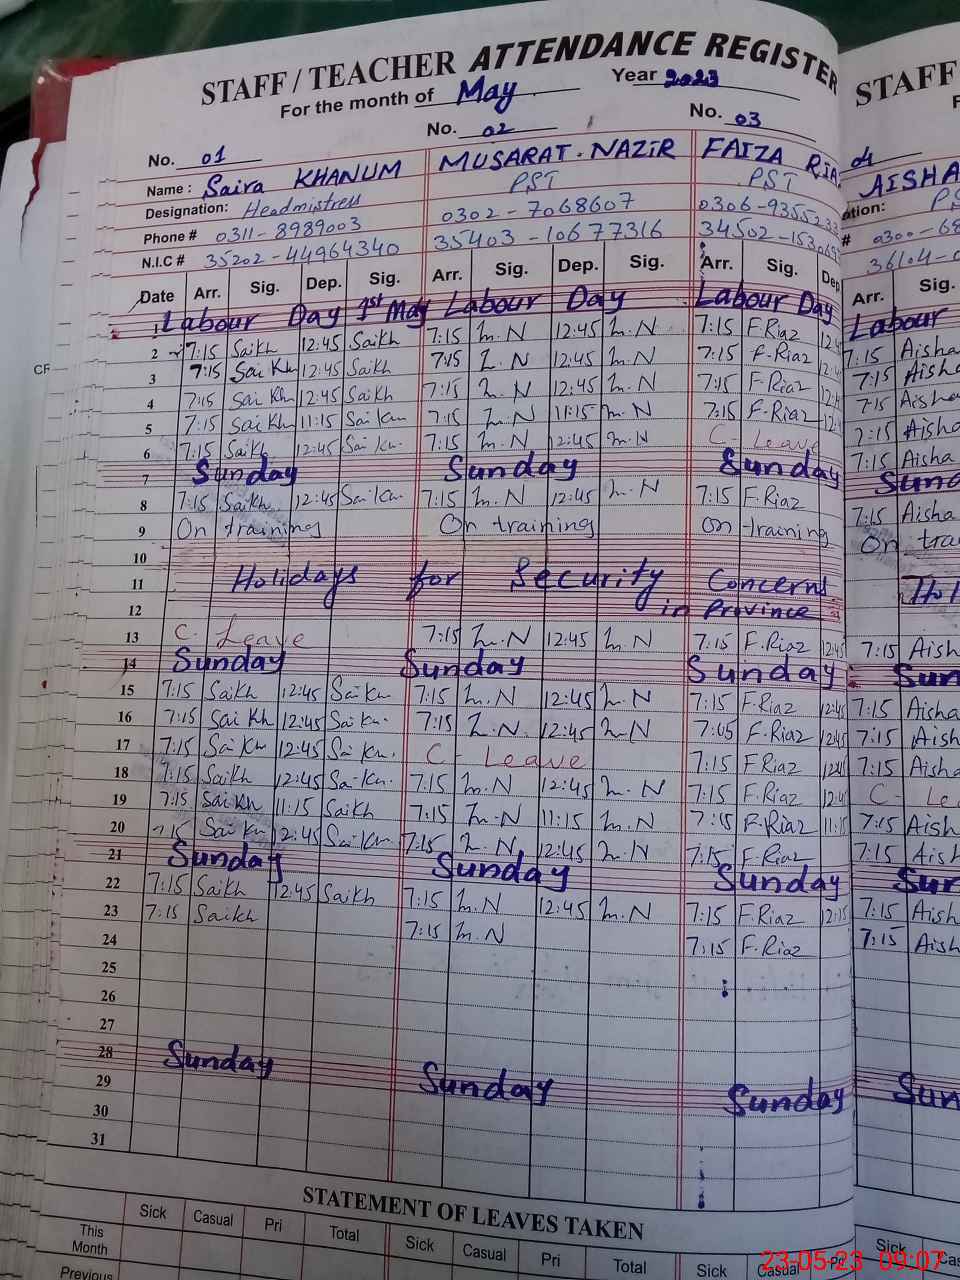 STAFF / TEACHER ATTENDANCE REGISTER STAFF
For the month of May Year 2023
No. 01 No. 02 No. 03 04
Name : Saira KHANUM MUSARAT. NAZIR FAIZA RIA AISHA
Designation: Headmistress PST PST
Phone # 0311-8989003 0302-7068607 0306-9355233 # 0300-68
N.I.C # 35202-44964340 35403-10677316 34502- 36104-0
Date Arr. Sig. Dep. Sig. Arr. Sig. Dep. Sig. Arr. Sig. Dep Arr. Sig.
1 Labour Day 1st May Labour Day Labour Day Labour
2 7:15 Saikh 12:45 Saikh 7:15 M.N 12:45 M.N 7:15 F.Riaz 12:4 7:15 Aisha
3 7:15 Sai Kh 12:45 Saikh 7:15 M.N 12:45 M.N 7:15 F.Riaz 7:15 Aisha
4 7:15 Sai Kh 12:45 Saikh 7:15 M.N 12:45 M.N 7:15 F.Riaz 7:15 Aisha
5 7:15 Sai Kh 11:15 Sai Kh 7:15 M.N 11:15 M.N 7:15 F.Riaz 7:15 Aisha
6 7:15 Saikh 12:45 Sai Kh. 7:15 M.N 12:45 M.N C- Leave 7:15 Aisha
7 Sunday Sunday Sunday Sund
8 7:15 Saikh. 12:45 Sai Kh. 7:15 M.N 12:45 M.N 7:15 F.Riaz 7:15 Aisha
9 On training On training On training On trai
10
11 Holidays for Security Concerns Hol
12 in Province
13 C. Leave 7:15 M.N 12:45 M.N 7:15 F.Riaz 12:45 7:15 Aish
14 Sunday Sunday Sunday Sun
15 7:15 Saikh 12:45 Sai Kh. 7:15 M.N 12:45 M.N 7:15 F.Riaz 12:45 7:15 Aisha
16 7:15 Sai Kh 12:45 Sai Kh. 7:15 M.N 12:45 M.N 7:05 F.Riaz 12:45 7:15 Aish
17 7:15 Sai Kh 12:45 Sai Kh. C- Leave 7:15 F.Riaz 12:45 7:15 Aish
18 7:15 Saikh 12:45 Sai Kh. 7:15 M.N 12:45 M.N 7:15 F.Riaz 12:4 C- Le
19 7:15 Sai Kh 11:15 Saikh 7:15 M.N 11:15 M.N 7:15 F.Riaz 11:15 7:15 Aish
20 7:15 Sai Kh 12:45 Sai Kh 7:15 M.N 12:45 M.N 7:15 F.Riaz 7:15 Aish
21 Sunday Sunday Sunday Sun
22 7:15 Saikh 12:45 Saikh 7:15 M.N 12:45 M.N 7:15 F.Riaz 7:15 Aish
23 7:15 Saikh 7:15 M.N 7:15 F.Riaz 7:15 Aish
24
25
26
27
28 Sunday Sunday Sunday Sun
29
30
31
STATEMENT OF LEAVES TAKEN
Sick Casual Pri Total Sick Casual Pri Total Sick Casual Pri Sick Cas
This Month
Previous
23-05-23 09:07